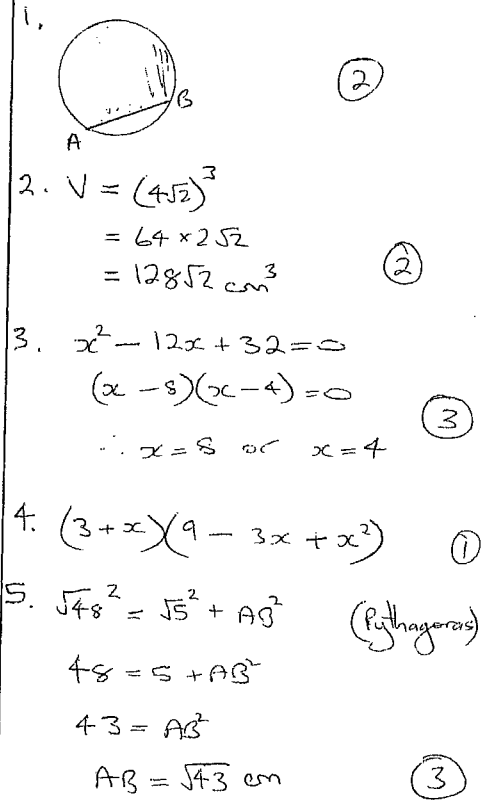 1.
B
A
②
2. V = (4√2)³
= 64 × 2√2
= 128√2 cm³
②
3. x² − 12x + 32 = 0
(x − 8)(x − 4) = 0
∴ x = 8 or x = 4
③
4. (3 + x)(9 − 3x + x²)
①
5. √48² = √5² + AB² (Pythagoras)
48 = 5 + AB²
43 = AB²
AB = √43 cm
③